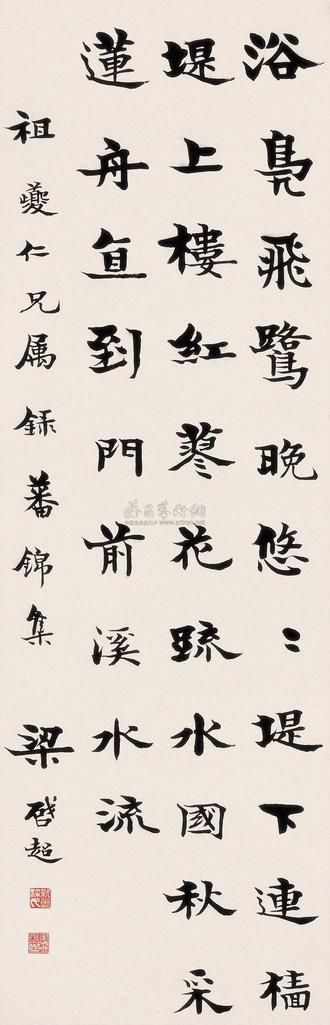 浴鳧飛鷺晚悠〻堤下連樯
堤上樓紅蓼花疏水國秋采
蓮舟直到門前溪水流
祖夔仁兄属録蕃錦集
梁啓超